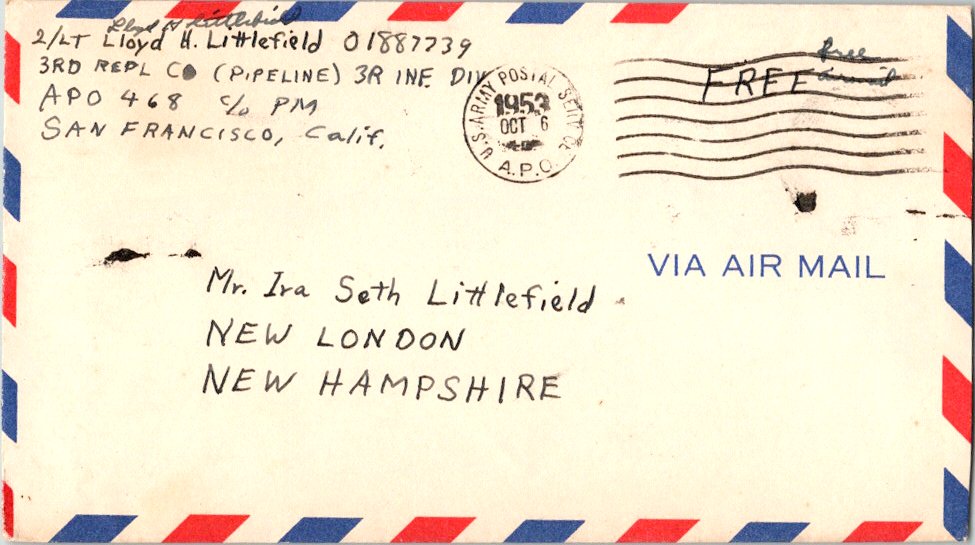 Lloyd H Littlefield
2/LT Lloyd H. Littlefield 01887739
3RD REPL CO (PIPELINE) 3R INF. DIV
APO 468 c/o PM
SAN FRANCISCO, Calif.
U.S. ARMY POSTAL SERVICE
1953
OCT 6
A.P.O.
free
FREE
VIA AIR MAIL
Mr. Ira Seth Littlefield
NEW LONDON
NEW HAMPSHIRE